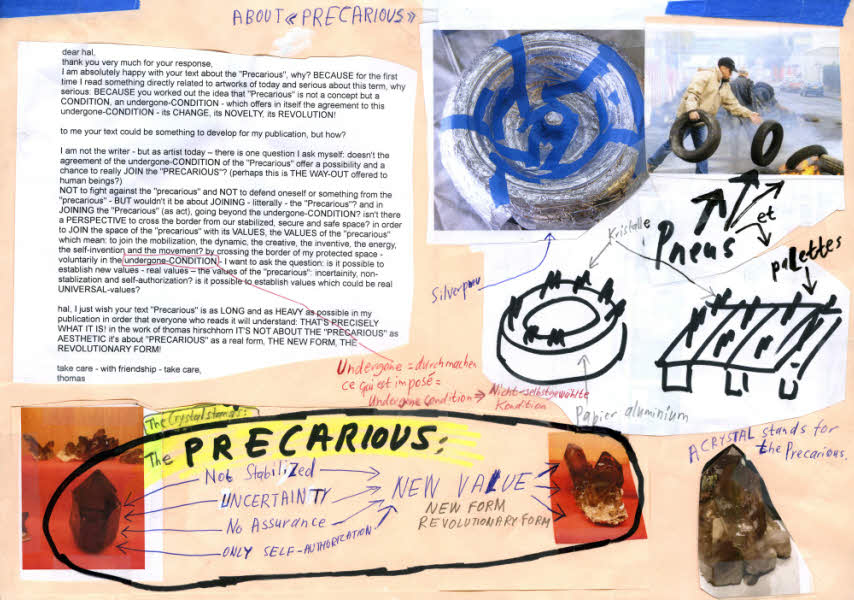 ABOUT «PRECARIOUS»
dear hal,
thank you very much for your response,
I am absolutely happy with your text about the "Precarious", why? BECAUSE for the first
time I read something directly related to artworks of today and serious about this term, why
serious: BECAUSE you worked out the idea that "Precarious" is not a concept but a
CONDITION, an undergone-CONDITION - which offers in itself the agreement to this
undergone-CONDITION - its CHANGE, its NOVELTY, its REVOLUTION!
to me your text could be something to develop for my publication, but how?
I am not the writer - but as artist today – there is one question I ask myself: doesn't the
agreement of the undergone-CONDITION of the "Precarious" offer a possibility and a
chance to really JOIN the "PRECARIOUS"? (perhaps this is THE WAY-OUT offered to
human beings?)
NOT to fight against the "precarious" and NOT to defend oneself or something from the
"precarious" - BUT wouldn't it be about JOINING - litterally - the "Precarious"? and in
JOINING the "Precarious" (as act), going beyond the undergone-CONDITION? isn't there
a PERSPECTIVE to cross the border from our stabilized, secure and safe space? in order
to JOIN the space of the "precarious" with its VALUES, the VALUES of the "precarious"
which mean: to join the mobilization, the dynamic, the creative, the inventive, the energy,
the self-invention and the movement? by crossing the border of my protected space -
voluntarily in the undergone-CONDITION - I want to ask the question: is it possible to
establish new values - real values – the values of the "precarious": incertainity, non-
stablization and self-authorization? is it possible to establish values which could be real
UNIVERSAL-values?
hal, I just wish your text "Precarious" is as LONG and as HEAVY as possible in my
publication in order that everyone who reads it will understand: THAT'S PRECISELY
WHAT IT IS! in the work of thomas hirschhorn IT'S NOT ABOUT THE "PRECARIOUS" as
AESTHETIC it's about "PRECARIOUS" as a real form, THE NEW FORM, THE
REVOLUTIONARY FORM!
take care - with friendship - take care,
thomas
Silverpneu
Kristalle
Pneus
et
palettes
Papier aluminium
Undergone = durchmachen
ce qui est imposé =
Undergone Condition → Nicht-selbstgewählte
Kondition
The Crystal stands:
The PRECARIOUS:
Not Stabilized
UNCERTAINTY
No Assurance
ONLY SELF-AUTHORIZATION
NEW VALUE
NEW FORM
REVOLUTIONARY FORM
A CRYSTAL stands for
the Precarious.